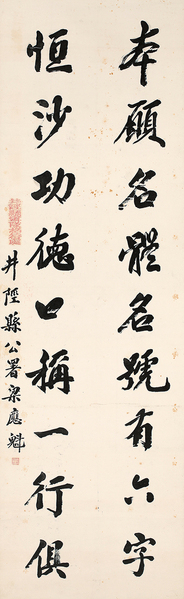 本願名體名號有六字
恒沙功德口稱一行俱
井陘縣公署梁應魁